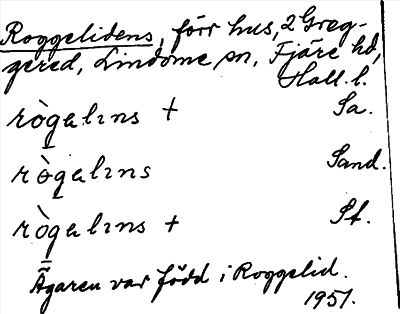 Roggelidens, förr hus, 2 Greg-
gered, Lindome sn, Fjäre hd,
Hall. l.
rògəlɪns + Sa.
rògəlɪns Sand.
rògəlɪns + Pt.
Ägaren var född i Roggelid.
1951.